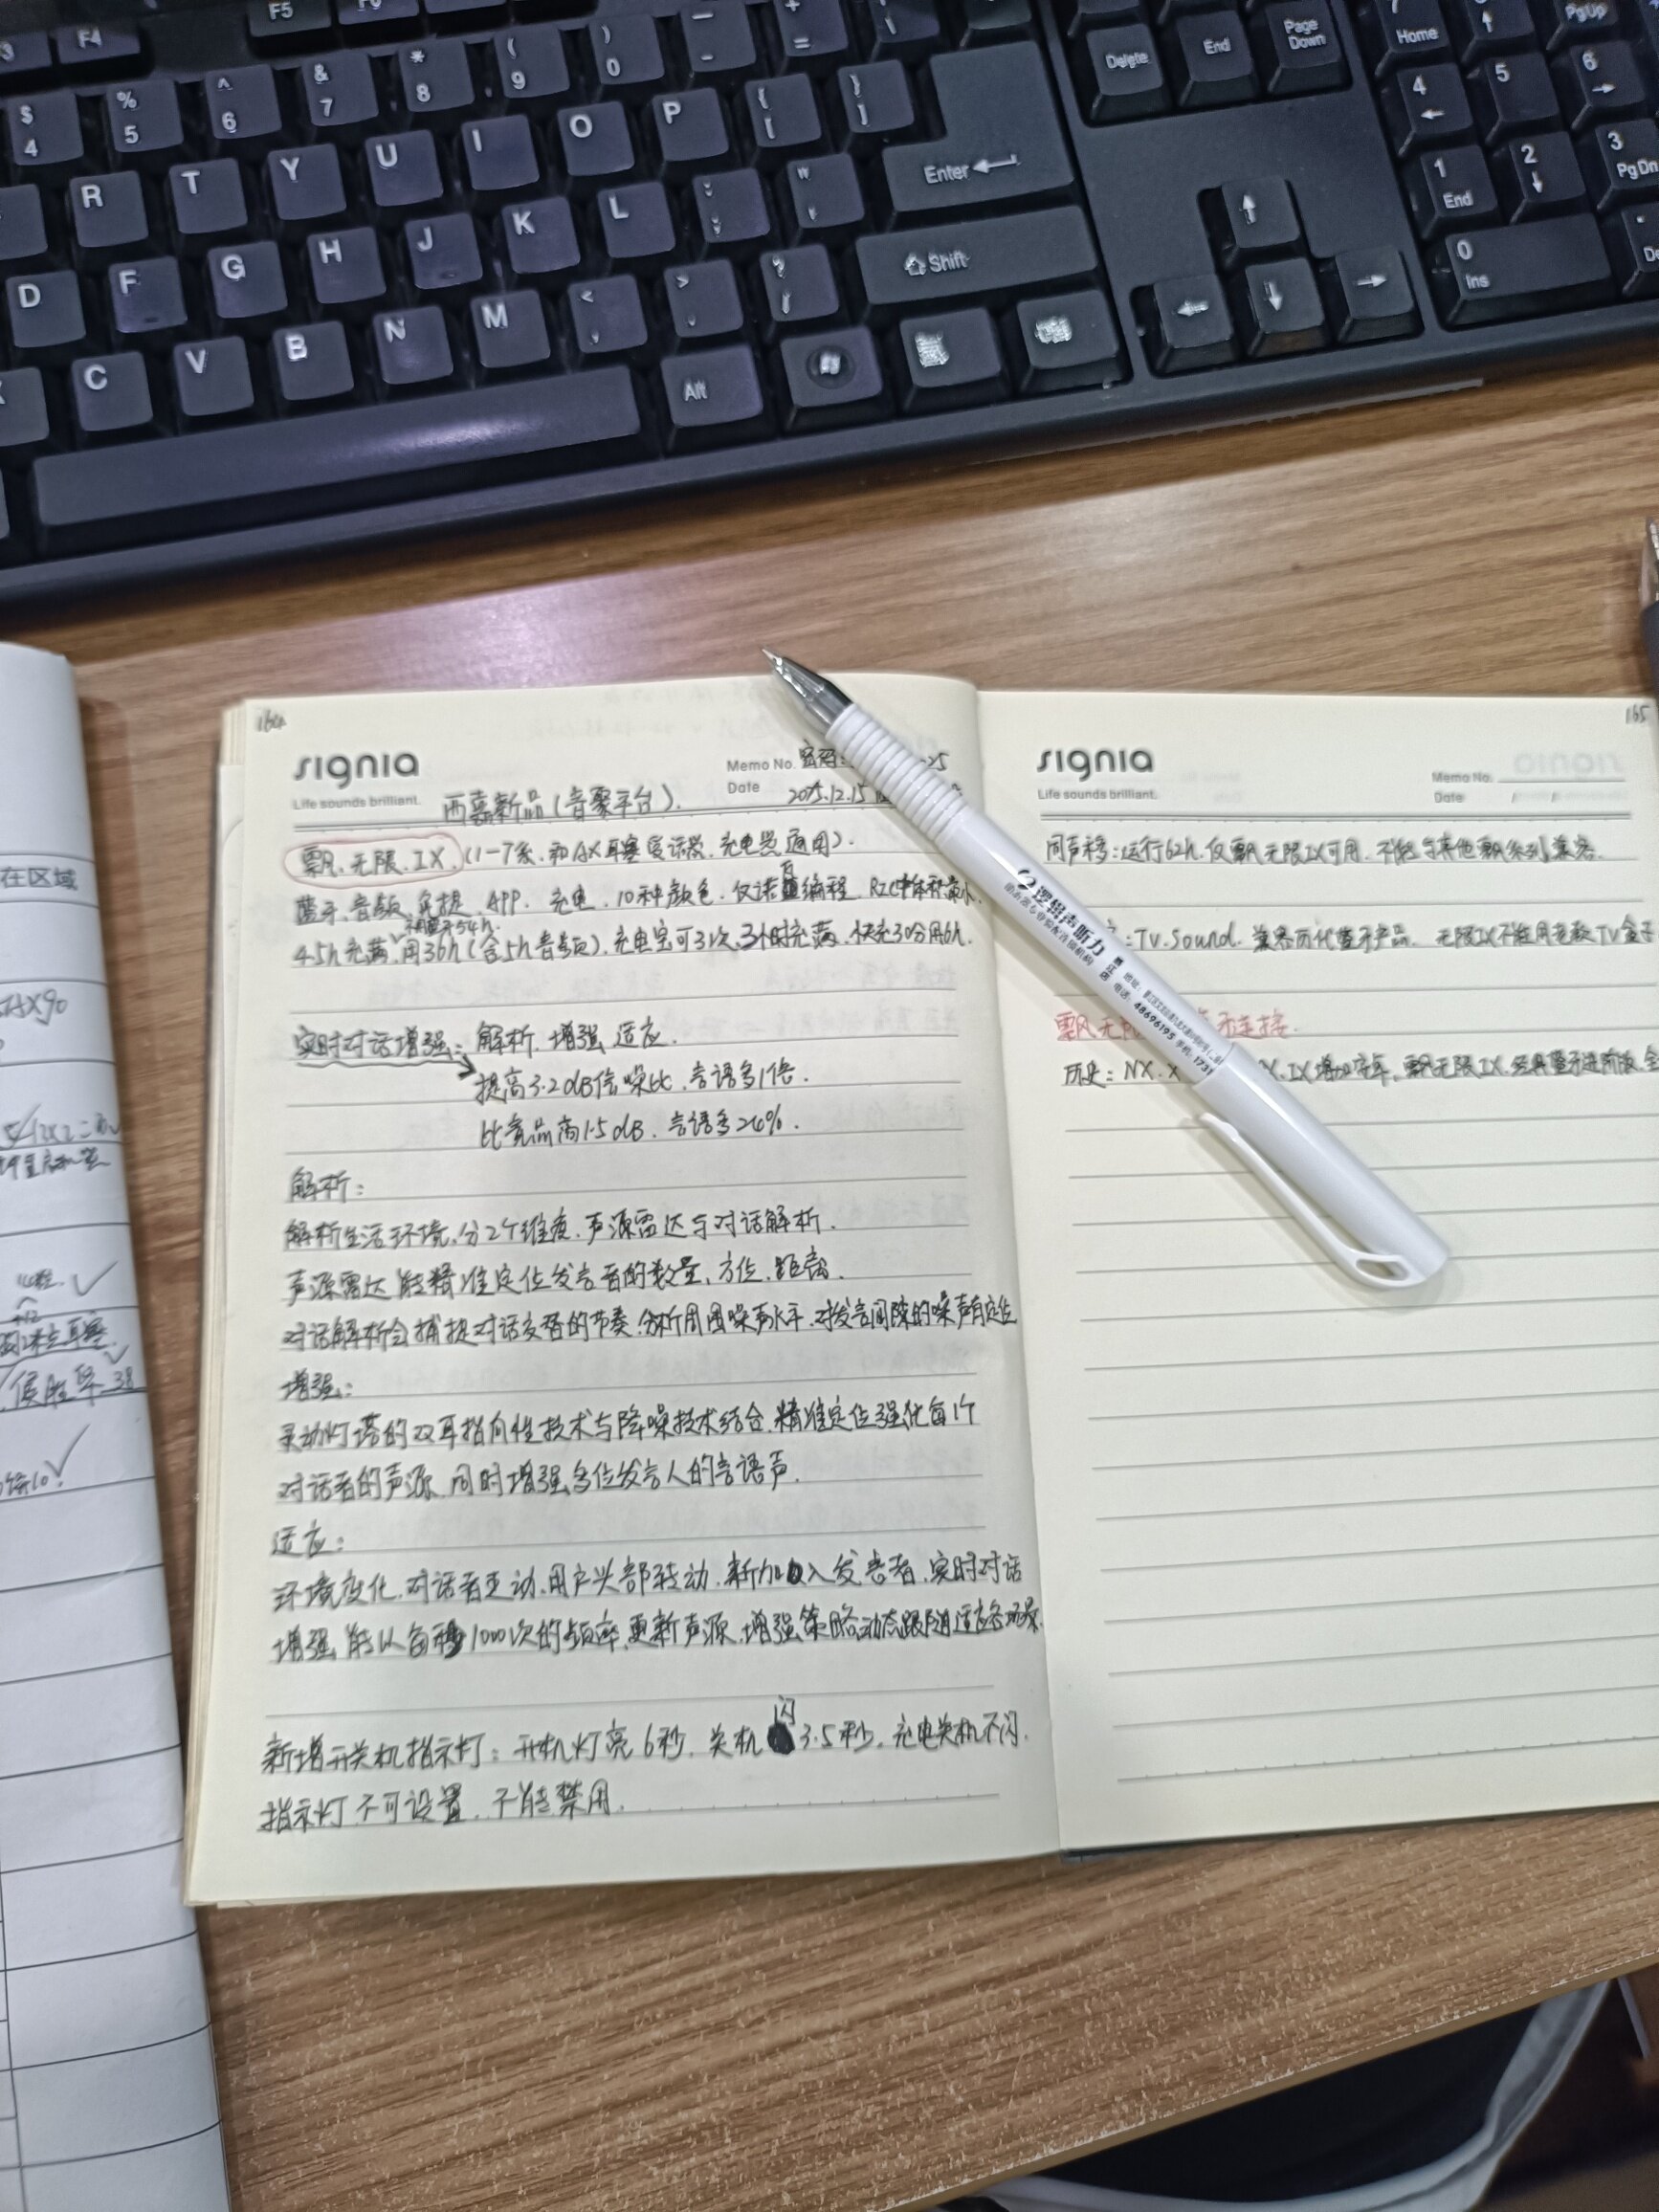 F5
F4
$ 4
% 5
^ 6
& 7
* 8
( 9
) 0
+ =
Delete
End
Page Down
7 Home
PgUp
R T Y U I O P { [ } ]
Enter
4
5
6
D F G H J K L
Shift
1 End
2
3 PgDn
C V B N M < , > . ? /
Alt
0 Ins
164
signia
Life sounds brilliant.
Memo No.
Date 2025.12.15
西嘉新品(音聚平台).
飘.无限.IX.(1-7系.和AX耳塞受话器.充电器通用).
蓝牙.音频.免提.APP.充电.10种颜色.仅诺亚编程.RIC中体积最小.
4.5h充满,用36h(含5h音频).充电宝可3次,3小时充满.快充30分用6h.
实时对话增强:解析.增强.适应.
提高3.2dB信噪比.言语多1倍.
比竞品高1.5dB.言语多24%.
解析:
解析生活环境,分2个维度.声源雷达与对话解析.
声源雷达能精准定位发言者的数量,方位,距离.
对话解析会捕捉对话交替的节奏.分析周围噪声水平.对发言间隙的噪声有定位
增强:
灵动灯塔的双耳指向性技术与降噪技术结合.精准定位强化每1个
对话者的声源.同时增强多位发言人的言语声.
适应:
环境变化.对话者互动.用户头部转动.新加入发言者.实时对话
增强,能以每秒1000次的频率,更新声源.增强策略动态跟随适应各场景.
新增开关机指示灯:开机灯亮6秒.关机闪3.5秒.充电关机不闪.
指示灯不可设置.不能禁用.
165
signia
Life sounds brilliant.
Memo No.
Date / /
同声移:运行62h.仅飘无限IX可用.不能与其他飘系列兼容.
:TV.Sound.兼容历代蓝牙产品.无限IX不能用老款TV盒子
飘无限
连接.
历史:NX.X
X.IX增加
飘无限IX.经典蓝牙进阶版.全
逻辑声听力
助听器专业验配连锁机构
48696195
在区域
AX90
侯胜华 38